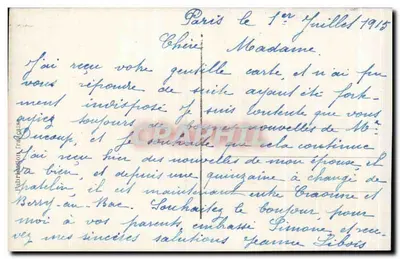 Paris le 1er Juillet 1915
Chère Madame.
J'ai reçu votre gentille carte, et n'ai pu
vous répondre de suite ayant été forte-
ment indisposé je suis contente que vous
ayiez toujours de nouvelles de Mr
et je souhaite que cela continue
J'ai reçu hier des nouvelles de mon époux, il
va bien, et depuis une quinzaine à changé de
il est maintenant entre Craonne et
Berry-au-Bac. Souhaitez le bonjour, pour
moi à vos parents, embrassé Simone, et rece-
vez mes sincères salutions Jeanne